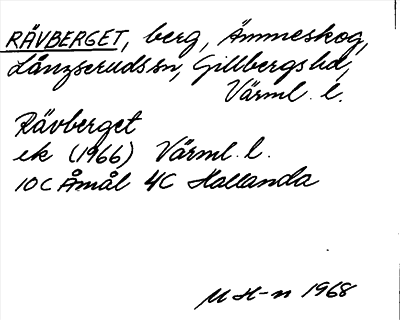 RÄVBERGET, berg, Ämmeskog,
Långseruds sn, Gillbergs hd,
Värml. l.
Rävberget
ek (1966) Värml. l.
10C Åmål 4C Hallanda
M H-n 1968